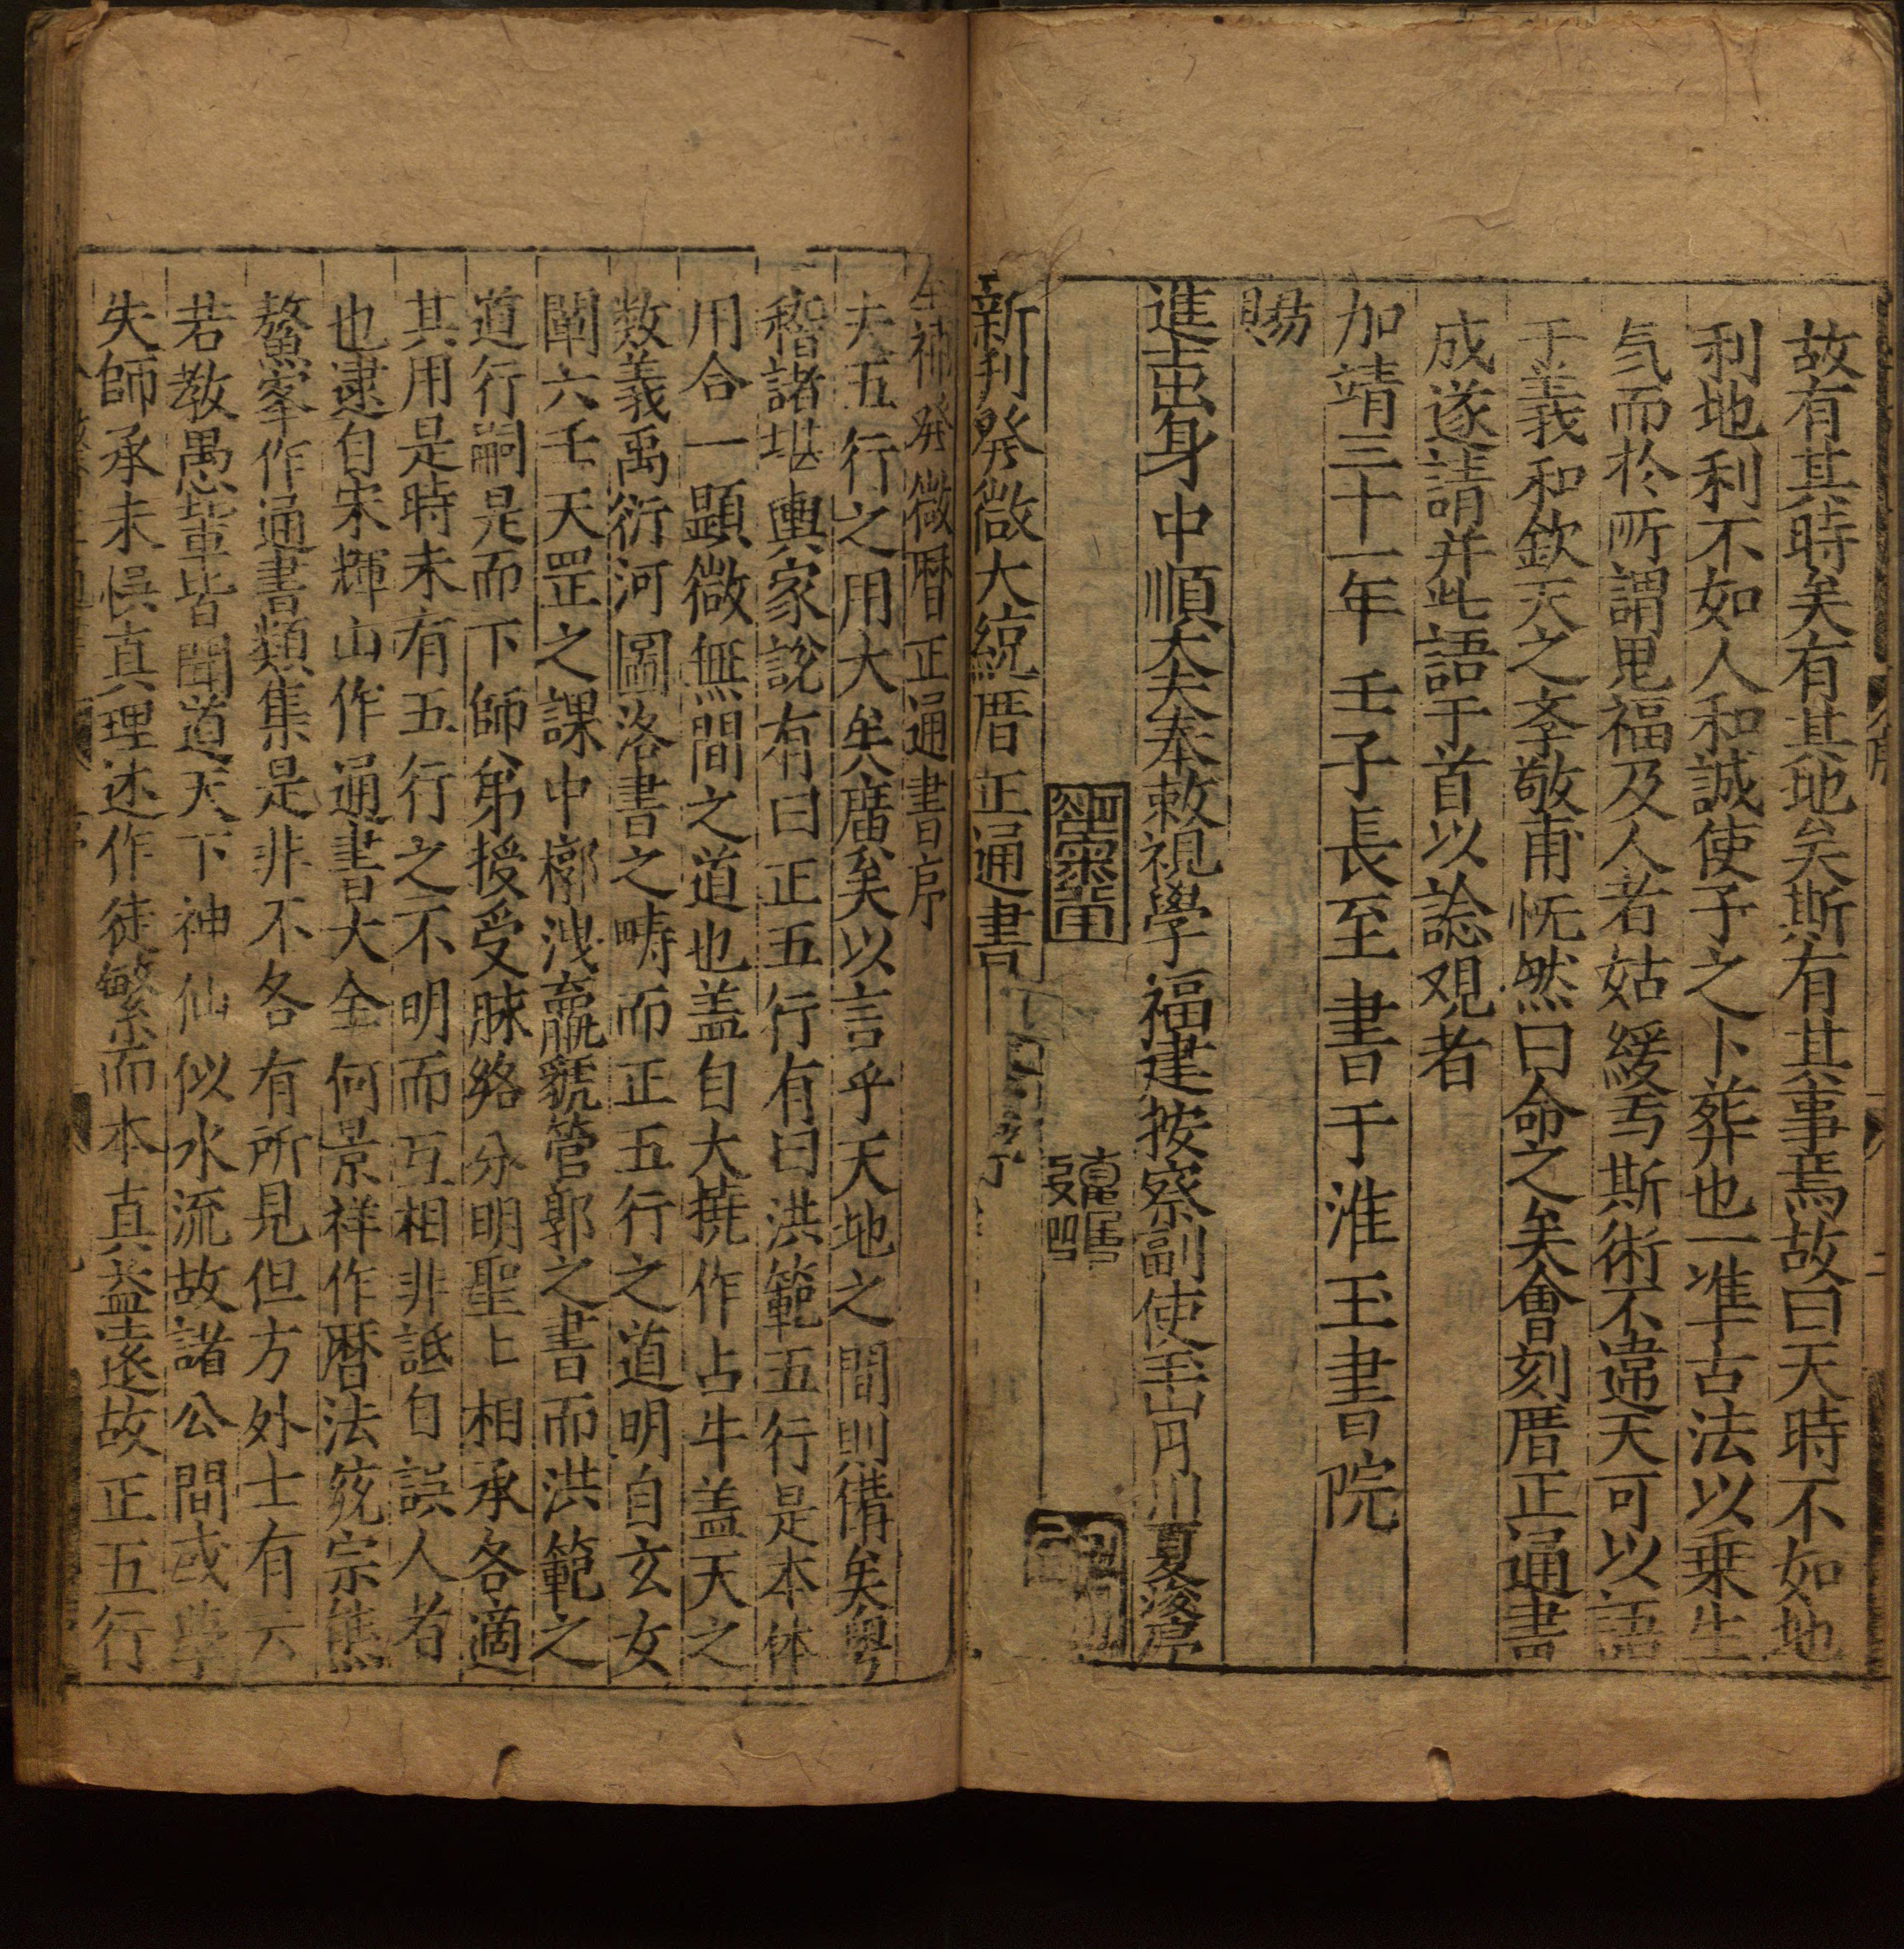 故有其時矣有其地矣斯有其事焉故曰天時不如地
利地利不如人和誠使子之卜葬也一準古法以乗生
氣而於所謂鬼福及人者姑緩焉斯術不違天可以語
于義和欽天之李敬甫怃然曰命之矣會刻厝正通書
成遂請并此語于首以諗观者
加靖三十一年壬子長至書于淮王書院
賜
進士出身中順大夫奉敕視學福建按察副使玉山月川夏浚序
新刋發微大統厝正通書
全補發微曆正通書序
夫五行之用大矣廣矣以言乎天地之間則備矣粤
稽諸堪輿家說有曰正五行有曰洪範五行是本体
用合一顕微無間之道也盖自大撓作占斗盖天之
数義禹衍河圖洛書之畴而正五行之道明自玄女
闡六壬天罡之課中
洩
管郭之書而洪範之
道行嗣是而下師弟授受脉絡分明聖上相承各適
其用是時未有五行之不明而互相非詆自誤人者
也逮自宋輝山作通書大全何景祥作曆法兖宗熊
鰲峯作通書類集是非不各有所見但方外士有云
若教愚輩皆聞道天下神仙似水流故諸公間或學
失師承未悞真理述作徒繁而本真益遠故正五行